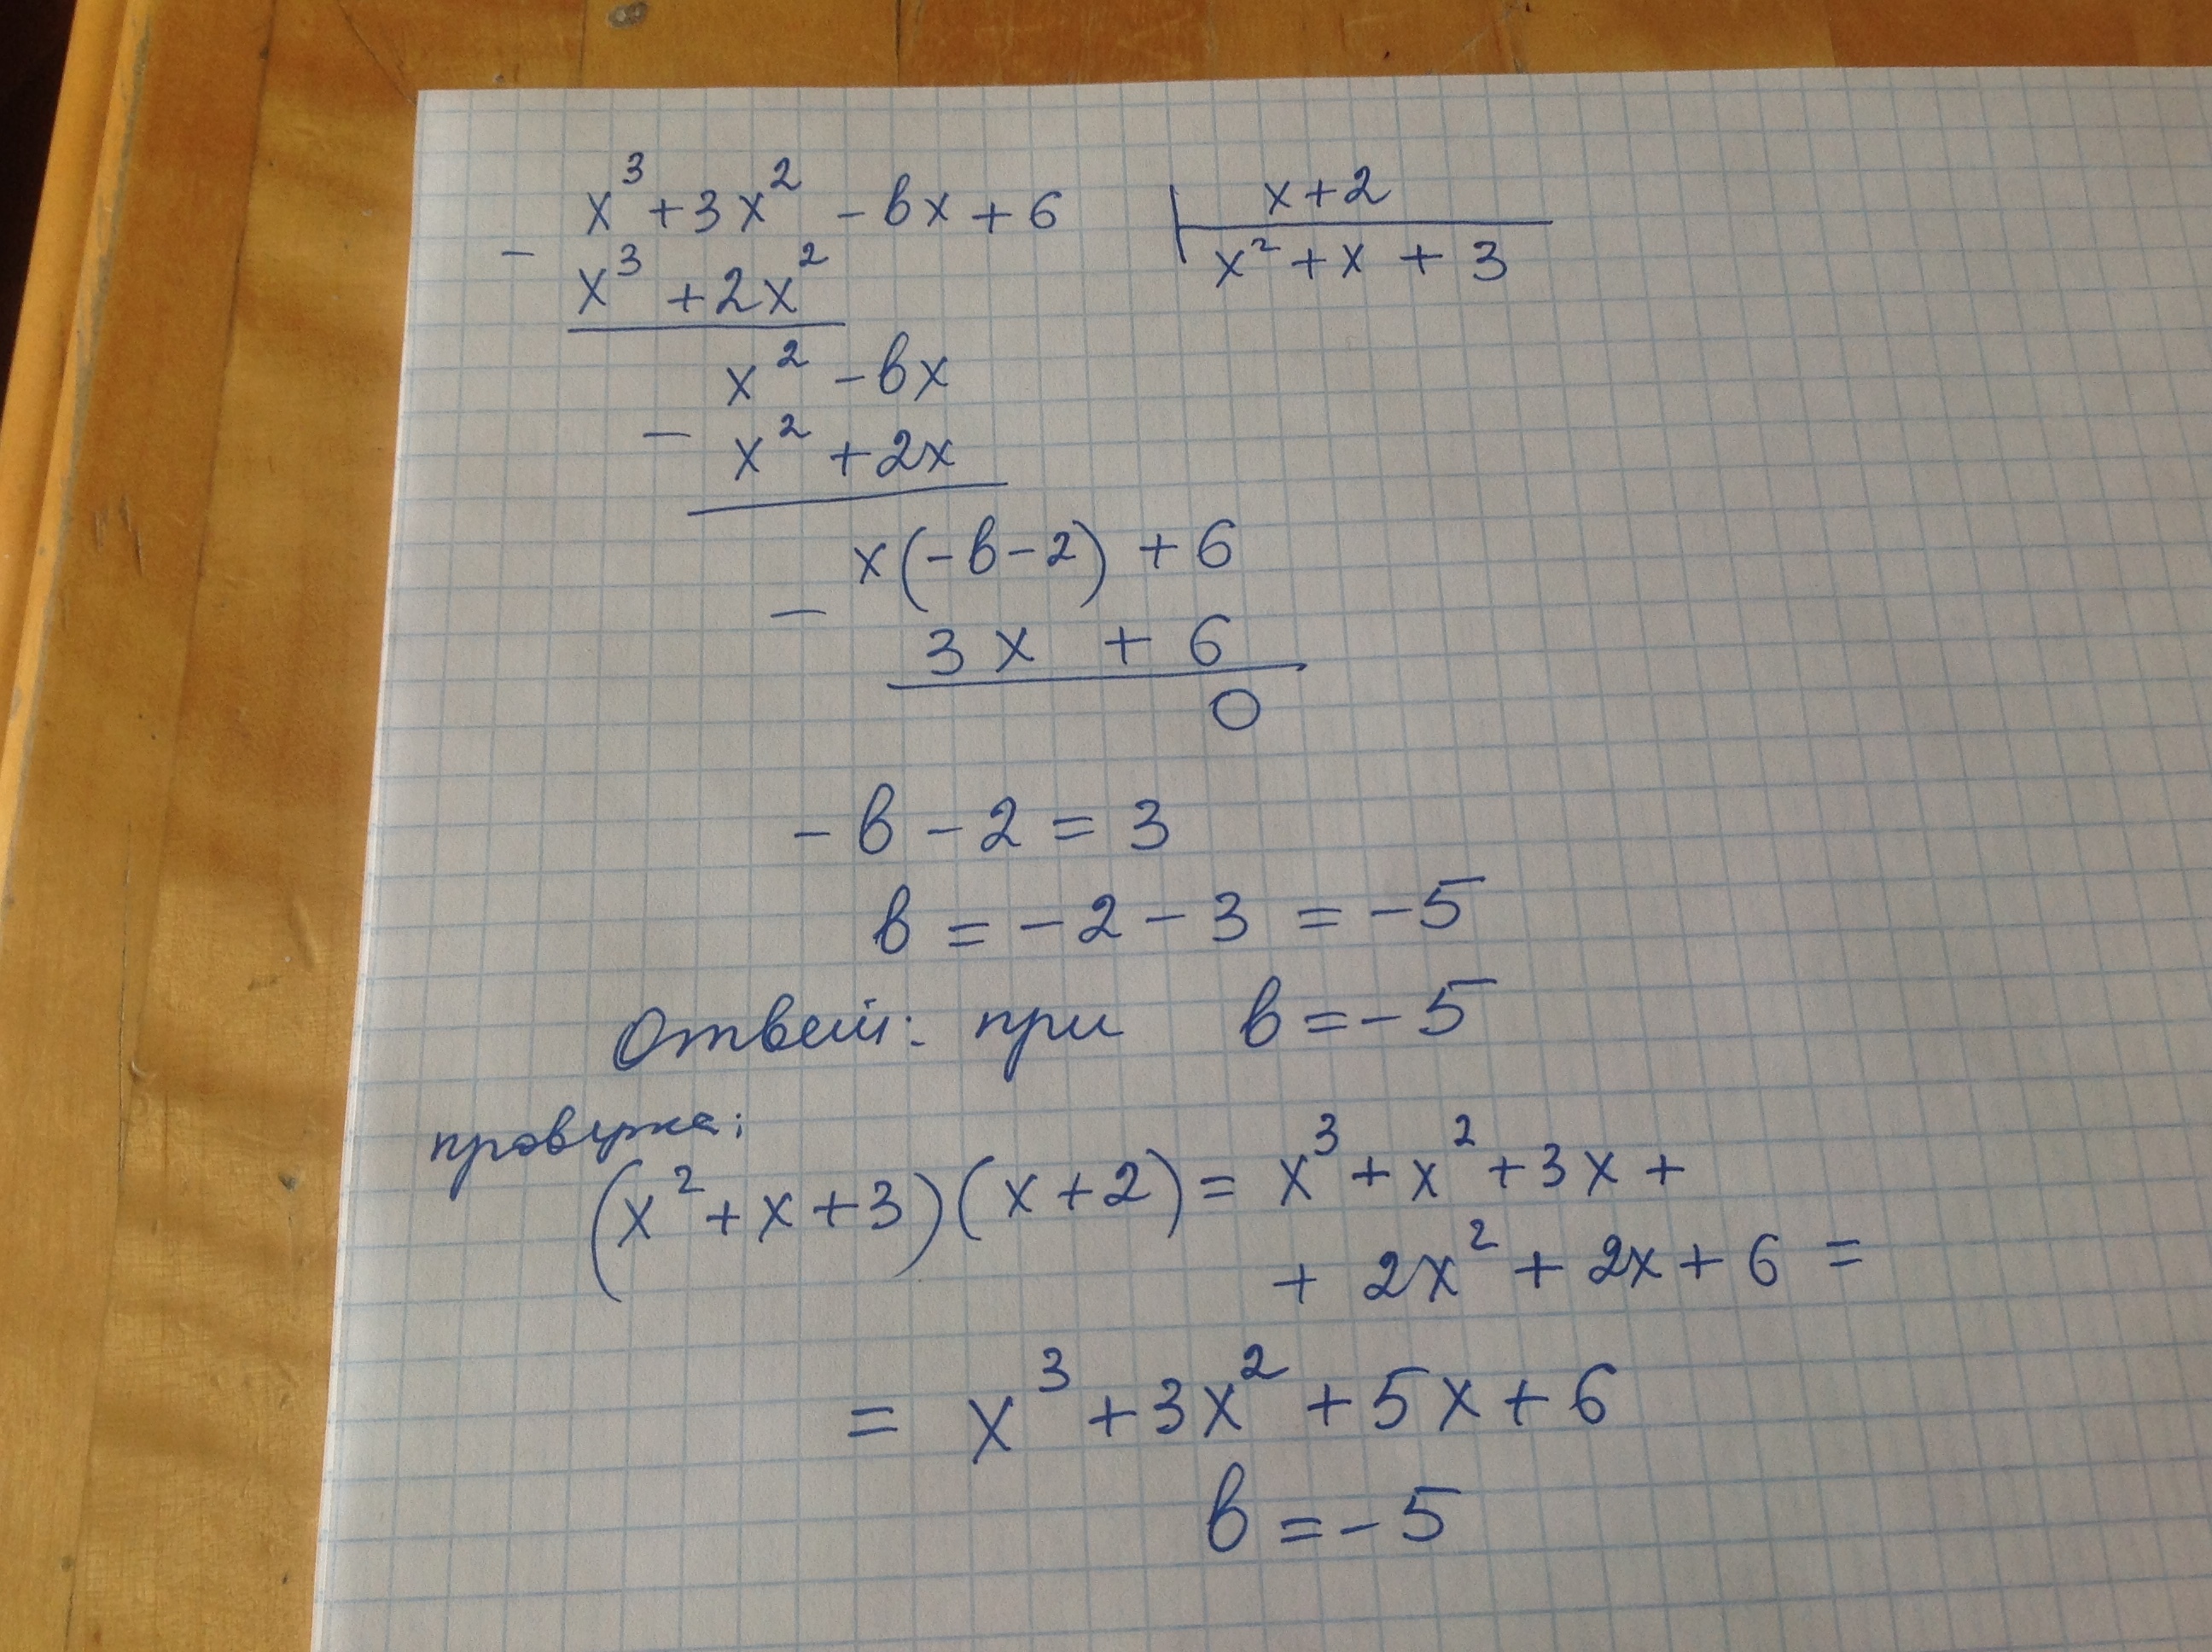 x³ + 3x² - bx + 6 | x + 2
- x³ + 2x² | x² + x + 3
x² - bx
- x² + 2x
x(-b-2) + 6
- 3x + 6
0
-b - 2 = 3
b = -2 - 3 = -5
Ответ: при b = -5
проверка:
(x² + x + 3)(x + 2) = x³ + x² + 3x +
+ 2x² + 2x + 6 =
= x³ + 3x² + 5x + 6
b = -5